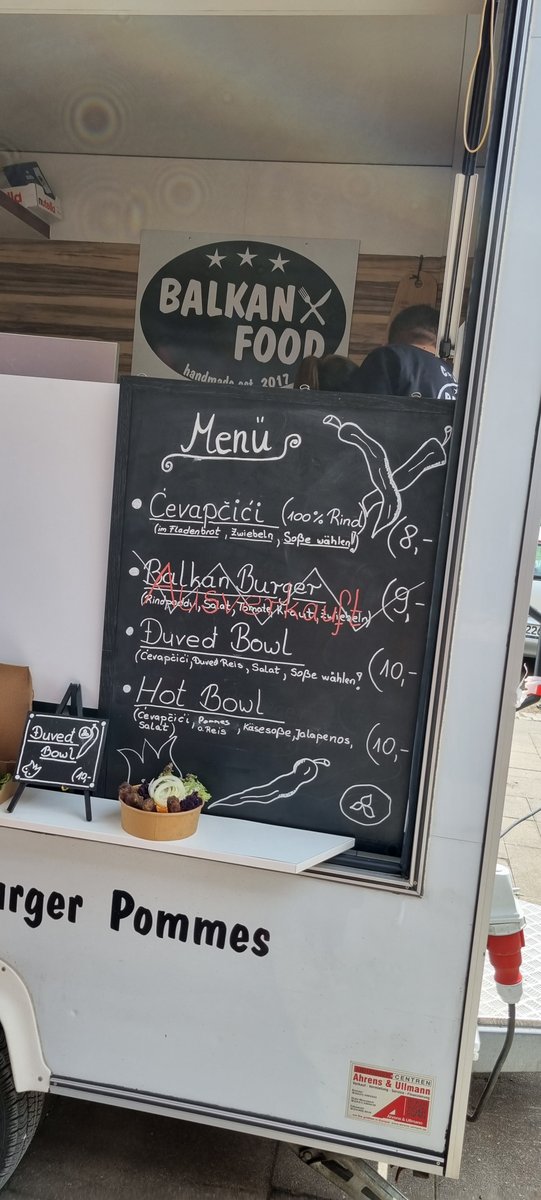 nutella
BALKAN
FOOD
handmade est. 2017
Menü
Ćevapčići (100% Rind)
(im Fladenbrot, Zwiebeln, Soße wählen!) (8,-
Balkan Burger (9,-
Ausverkauft
(Rindpaddy, Salat, Tomate, Kraut, Zwiebeln)
Đuveđ Bowl
(Ćevapčići, Duved Reis, Salat, Soße wählen! (10,-
Hot Bowl
(Ćevapčići, Pommes o. Reis, Käsesoße, Jalapenos,
Salat) (10,-
Đuveđ
Bowl
(10,-
urger Pommes
CENTREN
Ahrens & Ullmann